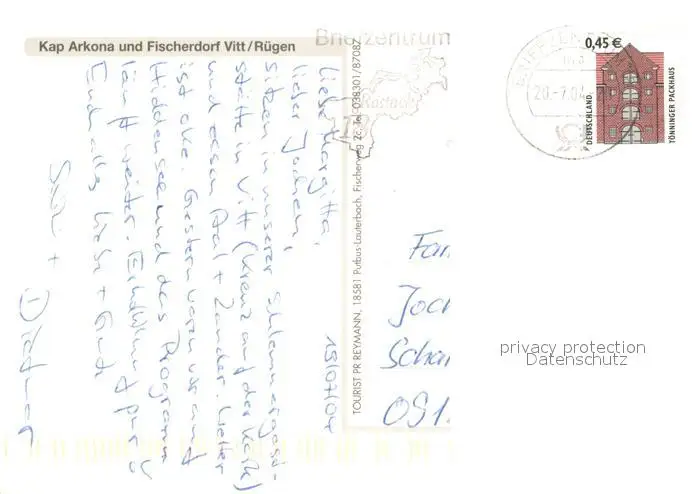 Kap Arkona und Fischerdorf Vitt/Rügen
Briefzentrum
Rostock
BRIEFZEN
20.-7.04
0,45 €
DEUTSCHLAND
TÖNNINGER PACKHAUS
18/07/04
Liebe Margitta,
lieber Jochen,
sitzen in unserer Schlemmergast-
stätte in Vitt (Kreuz auf der Karte)
und essen Aal + Zander. Wetter
ist oke. Gestern waren wir auf
Hiddensee und das Programm
läuft weiter. Erholung pur
Euch alles Liebe + Gute
+ Dietmar
TOURIST PR REYMANN, 18581 Putbus-Lauterbach, Fischerweg 2c, Tel. 038301/87082
Fam
Joch
Scha
091
privacy protection
Datenschutz